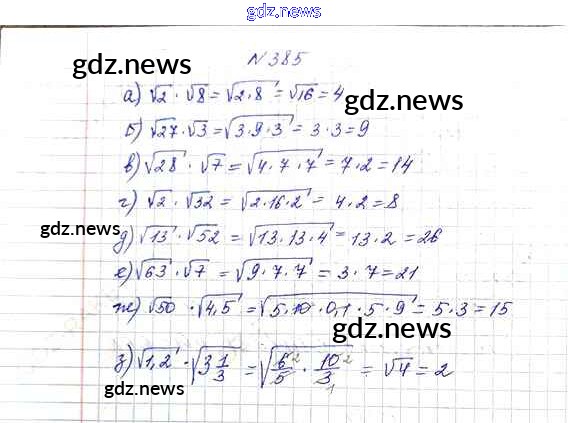 gdz.news
N 385
gdz.news
а) √2 · √8 = √2·8 = √16 = 4
gdz.news
б) √27 · √3 = √3·9·3 = 3·3 = 9
в) √28 · √7 = √4·7·7 = 7·2 = 14
г) √2 · √32 = √2·16·2 = 4·2 = 8
gdz.news
д) √13 · √52 = √13·13·4 = 13·2 = 26
е) √63 · √7 = √9·7·7 = 3·7 = 21
ж) √50 · √4,5 = √5·10·0,1·5·9 = 5·3 = 15
gdz.news
з) √1,2 · √3 1/3 = √6²/5 · 10²/3₁ = √4 = 2
gdz.news